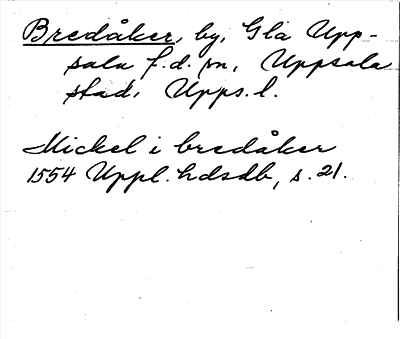 Bredåker, by, Gla Upp-
sala f.d. sn, Uppsala
stad, Upps. l.
Mickel i bredåker
1554 Uppl. hdsdb, s. 21.